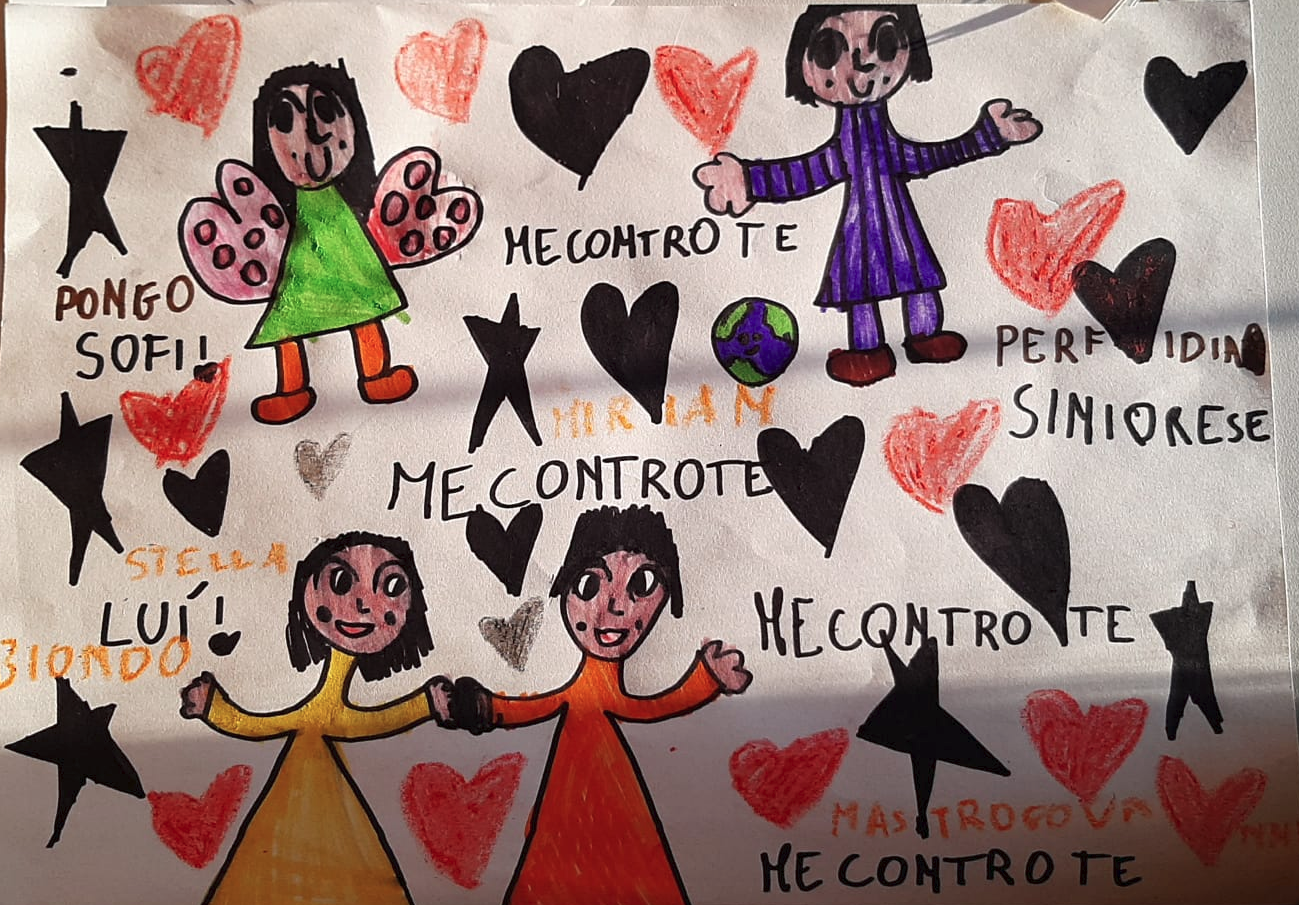 MECOMTRO TE
PONGO
SOFI!
PERFIDIA
SINIORESE
MIRIAM
MECONTROTE
STELLA
LUÍ!
BIONDO
MECONTRO TE
MECONTRO TE